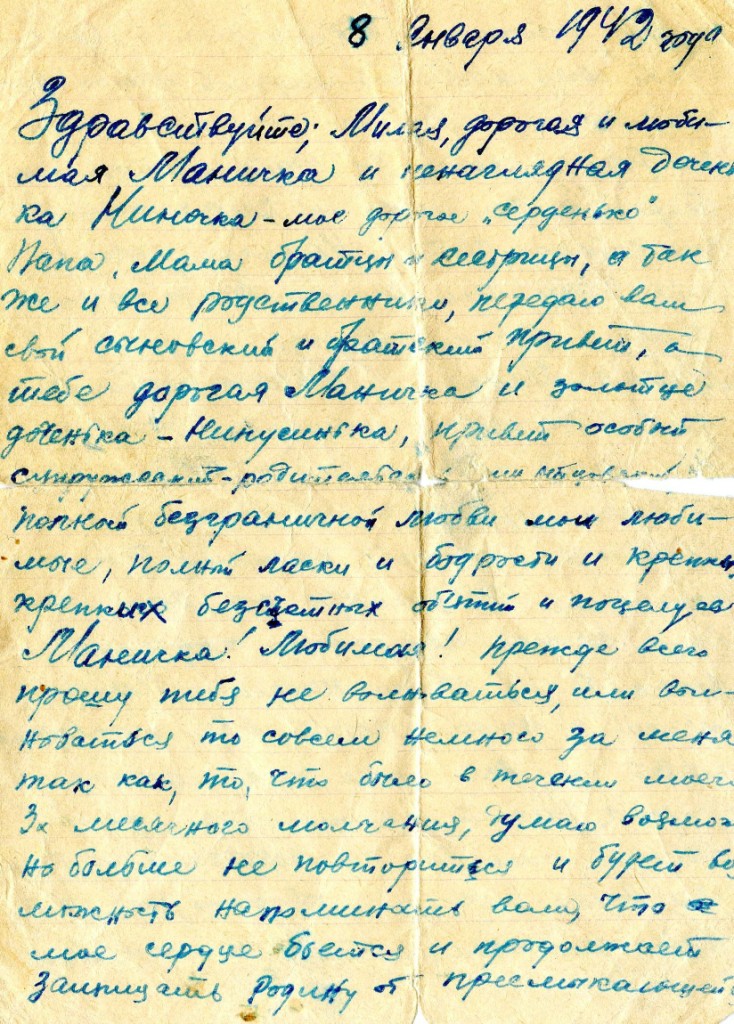 8 Января 1942 года
Здравствуйте; Милая, дорогая и люби-
мая Маничка и ненаглядная дочень
ка Ниночка – мое дорогое „серденько"
Папа, Мама братцы и сестрицы, а так
же и все родственники, передаю вам
свой сыновский и братский привет, а
тебе дорогая Маничка и золотце
доченька – Нинусинька, привет особый
супружеский-родительский
полный безграничной любви мои люби-
мые, полный ласки и бодрости и крепких
крепких безсчетных обятий и поцелуев
Маничка! Любимая! прежде всего
прошу тебя не волноваться, или вол-
новаться то совсем немного за меня
так как, то, что было в течении моего
3х месячного молчания, думаю возмож
но больше не повторится и будет воз
можность напоминать вам, что
мое сердце бьется и продолжает
защищать Родину от